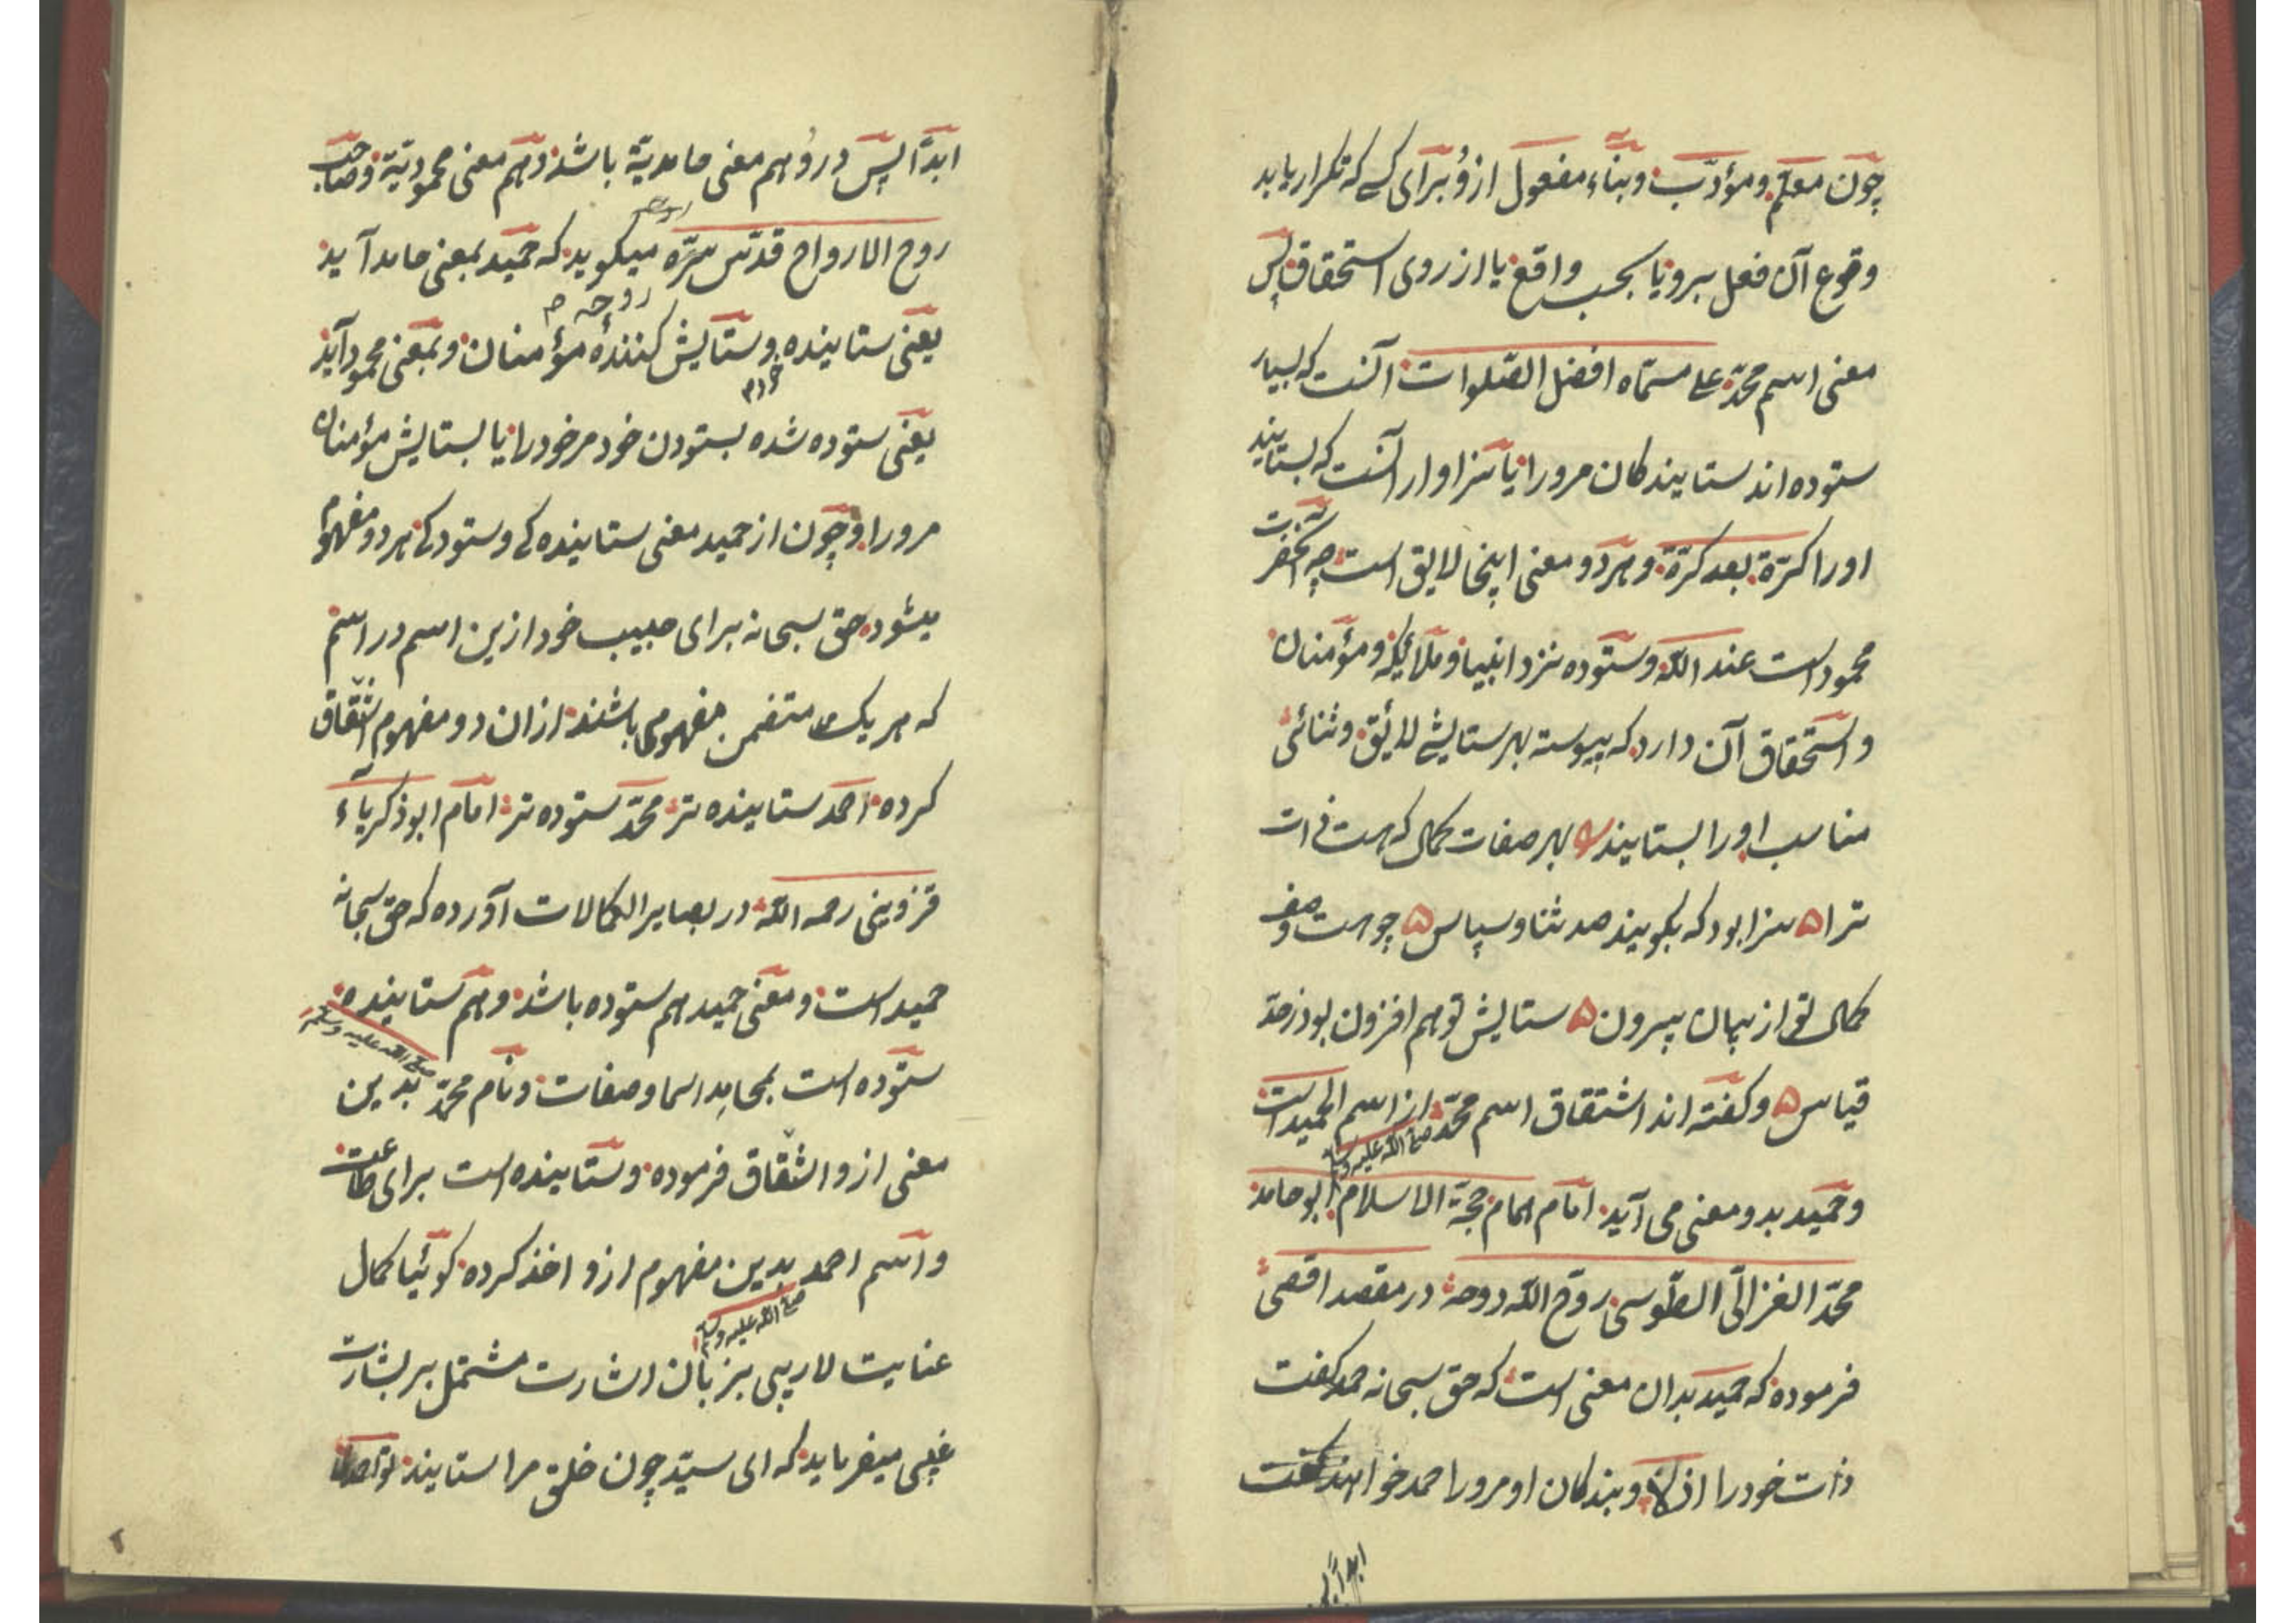 چون معلّم و مؤدّب و بناء مفعول ازو برای کسی که تکرار یابد
وقوع آن فعل برو یا بحسب واقع یا از روی استحقاق پس
معنی اسم محمّد علی مسمّاه افضل الصّلوات آنست که بسیار
ستوده‌اند ستایندکان مرورا یا سزاوار آنست که بستایند
اورا کرّة بعد کرّة و هر دو معنی اینجا لایق است چه آنحضرت
محمود است عند اللّه و ستوده نزد انبیا و ملائکه و مؤمنان
و استحقاق آن دارد که پیوسته بهر ستایشی لائق و ثنائی
مناسب اورا بستایند بهر صفات کمال که هست ذات
ترا ه سزا بود که بکویند صد ثنا و سپاس ه چو هست وصف
کمال تو از بیان بیرون ه ستایش تو هم افزون بود ز حدّ
قیاس ه و کفته‌اند اشتقاق اسم محمّد از اسم الحمید است
صلی اللّه علیه وسلم
و حمید بدو معنی می آید امام همام حجّة الاسلام ابو حامد
محمّد الغزالی الطّوسی روّح اللّه روحه در مقصد اقصی
فرموده که حمید بدان معنی است که حق سبحانه حمد کفت
ذات خود را ازلا و بندکان او مرورا حمد خواهند کفت
ابداً پس
ابداً پس درو هم معنی حامدیّة باشد و هم معنی محمودیّة و صاحب
روح الارواح قدّس سرّه میکوید که حمید بمعنی حامد آید
روحه م
یعنی ستاینده و ستایش کنندهٔ مؤمنان و بمعنی محمود آید
یعنی ستوده شده بستودن خود مر خود را یا بستایش مؤمنان
مرورا و چون از حمید معنی ستایندکی و ستودکی هر دو مفهوم
میشود حق سبحانه برای حبیب خود ازین اسم دو اسم
که هر یک متضمن مفهومی باشند از ان دو مفهوم اشتقاق
کرده احمد ستاینده تر محمّد ستوده تر امام ابو ذکریاء
قزوینی رحمه اللّه در بصایر الکمالات آورده که حق سبحانه
حمید است و معنی حمید هم ستوده باشد و هم ستاینده
صلی اللّه علیه وسلم
ستوده است بمحامد اسما و صفات و نام محمّد بدین
معنی ازو اشتقاق فرموده و ستاینده است برای طاعت
و اسم احمد بدین مفهوم ازو اخذ کرده کوئیا کمال
صلی اللّه علیه وسلم
عنایت لا ریبی بزبان اشارت مشتمل بر بشارت
غیبی میفرماید که ای سیّد چون خلق مرا ستایند تو